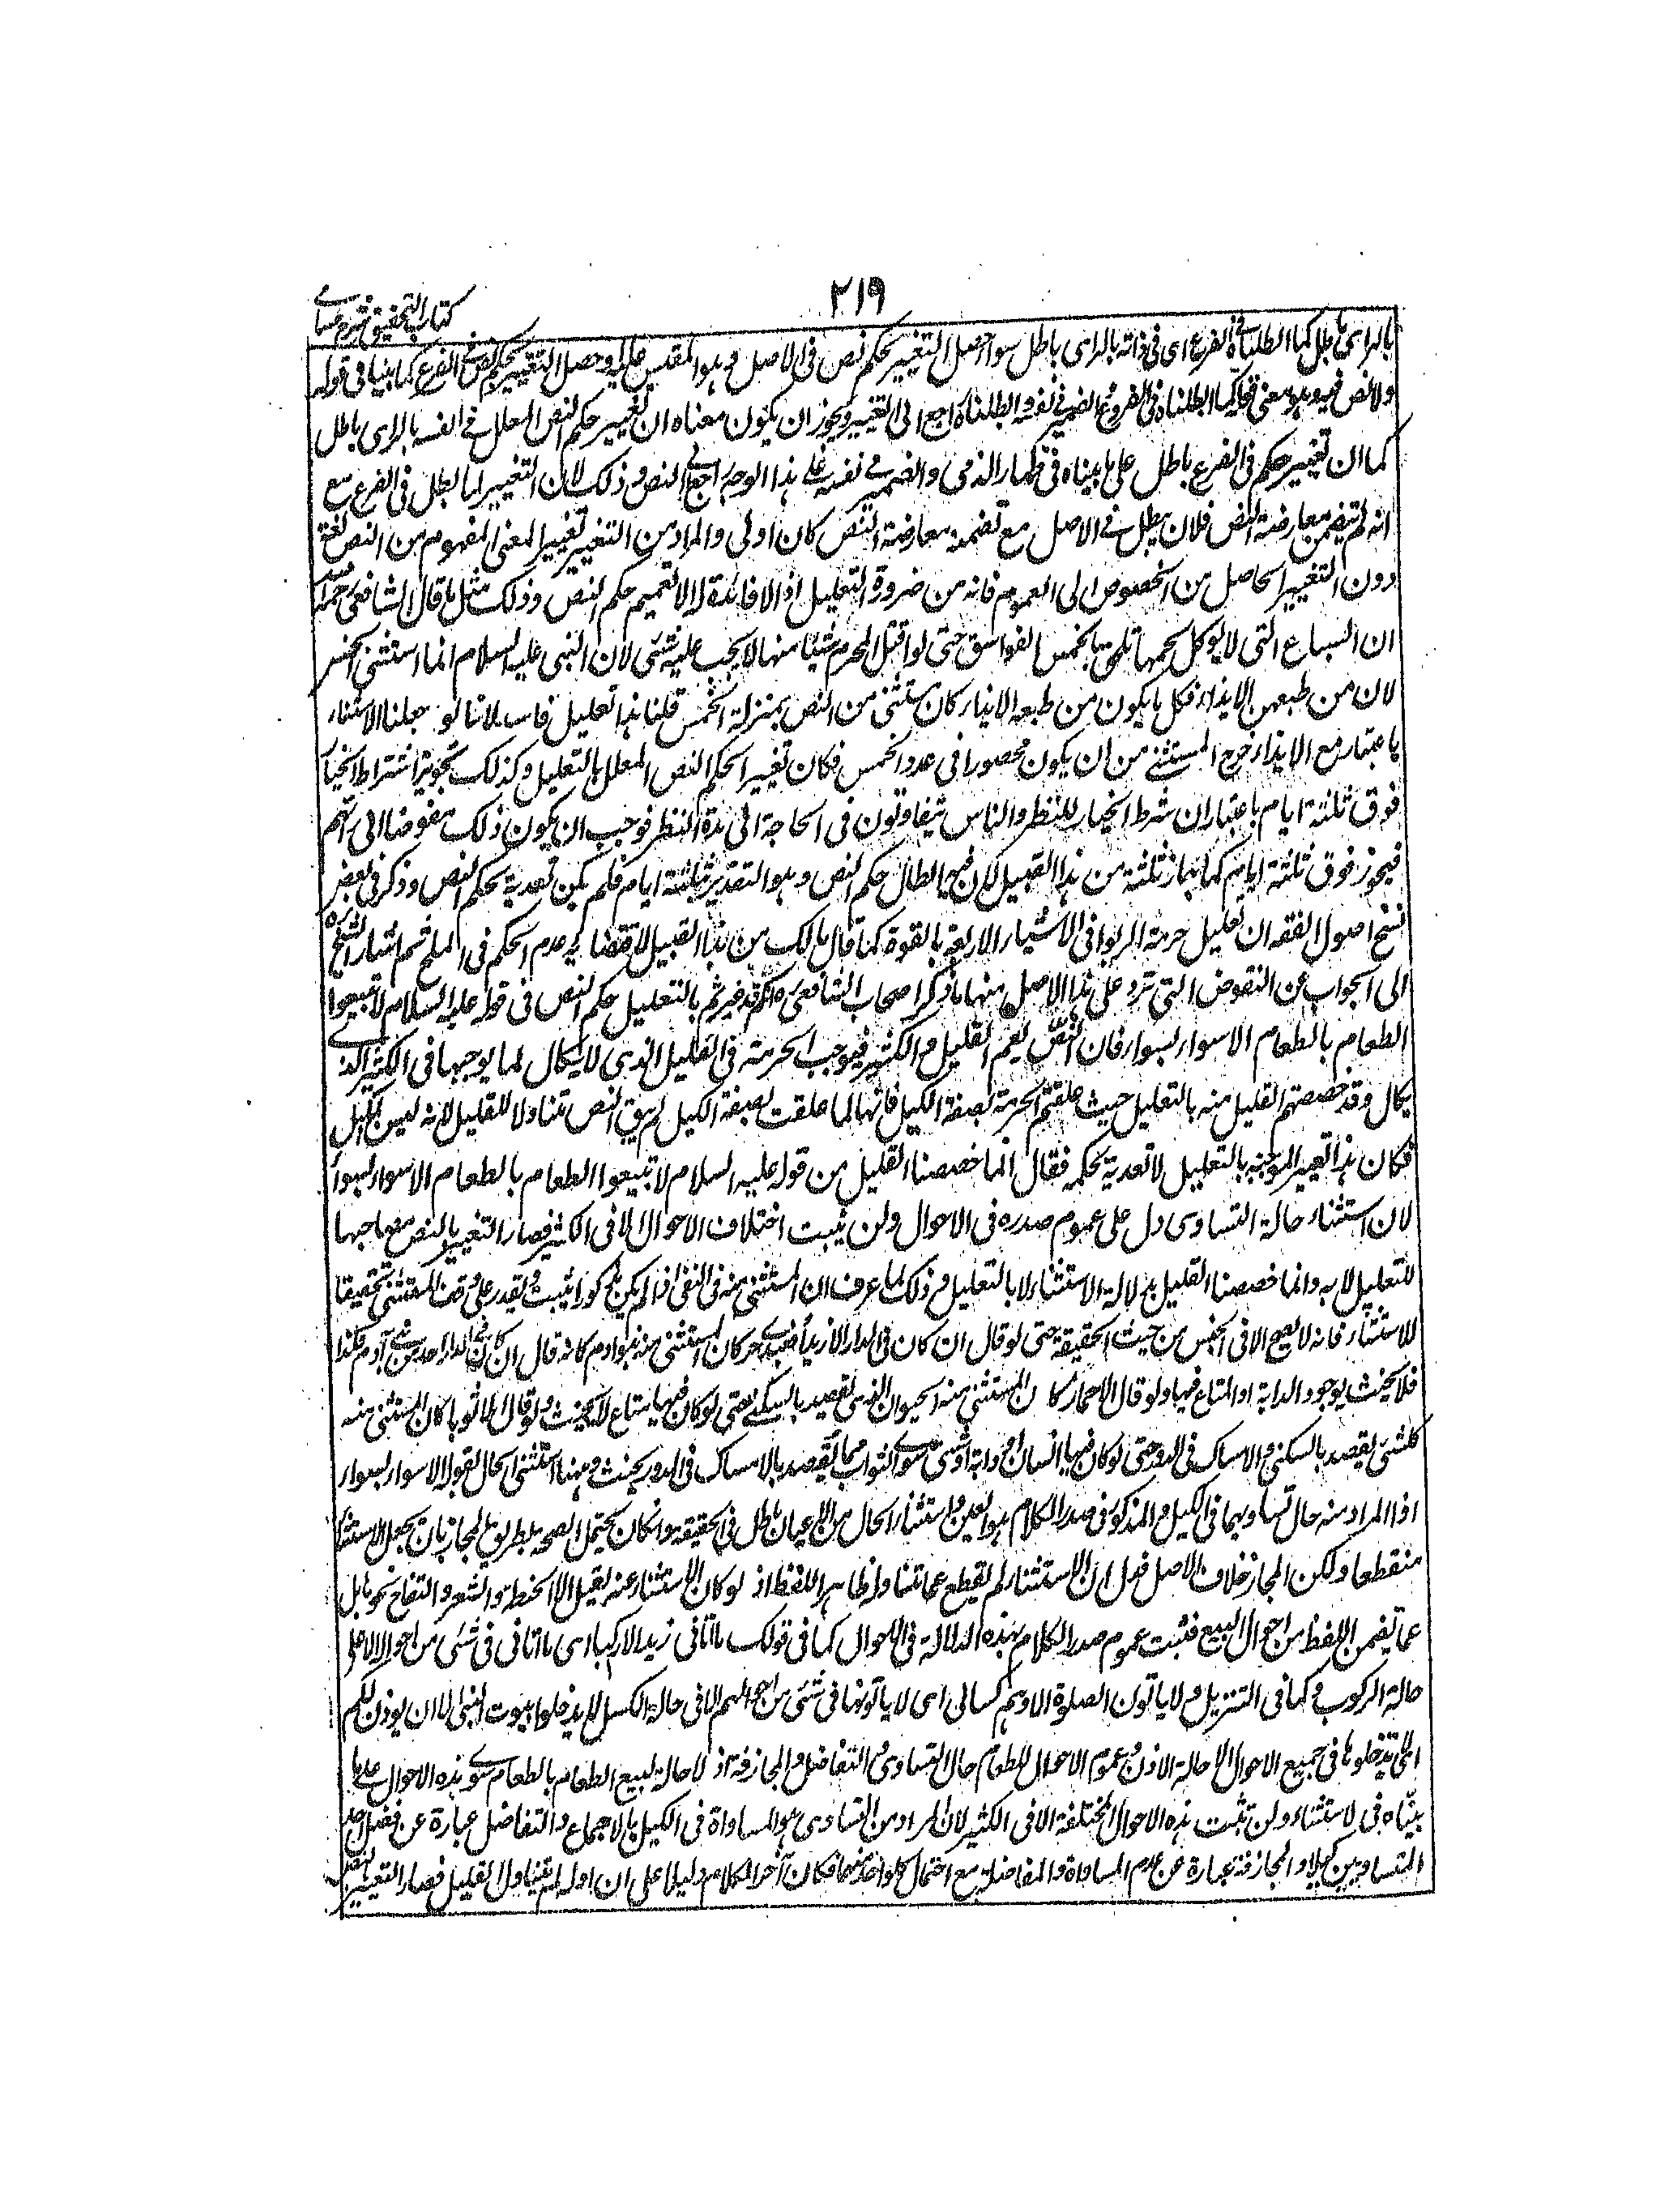 ٢١٩
كتاب التحقيق شرح حسامي
بالراى باطل كما ابطلناه فى الفرع اى فى ذاته بالراى باطل سواء حصل التغيير لحكم نص فى الاصل وهو المقيس عليه او حصل التغيير لحكم نص فى الفرع كما بينا فى قوله
ولا نص فيه وهو معنى قوله كما ابطلناه فى الفروع فالضمير فى نفسه وابطلناه راجع الى التغيير ويجوز ان يكون معناه ان تغيير حكم النص المعلل فى نفسه بالراى باطل
كما ان تغيير حكم فى الفرع باطل على ما بيناه فى ظهار الذمى والضمير فى نفسه على هذا الوجه راجع الى النص وذلك لان التغيير لما بطل فى الفرع مع
انه لم يتضمن معارضة النص فلان يبطل فى الاصل مع تضمنه معارضة النص كان اولى والمراد من التغيير تغيير المعنى المفهوم من النص لغة
دون التغيير الحاصل من الخصوص الى العموم فانه من ضرورة التعليل اذ لا فائدة له الا تعميم حكم النص وذلك مثل ما قال الشافعى رحمه الله
ان السباع التى لا يوكل لحمها تلحق بالخمس الفواسق حتى لو قتل المحرم شيئا منها لا يجب عليه شئى لان النبى عليه السلام انما استثنى الخمس
لان من طبعهن الايذاء فكل ما يكون من طبعه الايذاء كان مستثنى من النص بمنزلة الخمس قلنا هذا تعليل فاسد لانا لو جعلنا الاستثناء
باعتبار مع الايذاء خرج المستثنے من ان يكون محصورا فى عدد الخمس فكان تغييرا لحكم النص المعلل بالتعليل وكذلك تجويز اشتراط الخيار
فوق ثلثة ايام باعتبار ان شرط الخيار للنظر والناس يتفاوتون فى الحاجة الى مدة النظر فوجب ان يكون ذلك مفوضا الى رائهم
فيجوز فوق ثلثة ايام كما يجاز ثلثة من هذا القبيل لان فيه ابطال حكم النص وهو التقدير بثلثة ايام فلم يكن تعدية لحكم النص وذكر فى بعض
نسخ اصول الفقه ان تعليل حرمة الربوا فى الاشياء الاربعة بالقوة كما قال مالك من هذا القبيل لاقتضائه عدم الحكم فى الملح ثم اشار الشيخ ره
الى الجواب عن النقوض التى ترد على هذا الاصل منها ما ذكر اصحاب الشافعى ره انكم قد غيرتم بالتعليل حكم النص فى قوله عليه السلام لا تبيعوا
الطعام بالطعام الا سواء بسواء فان النص يعم القليل والكثير فيوجب الحرمة فى القليل الذى لا يكال كما يوجبها فى الكثير الذے
يكال وقد خصصتم القليل منه بالتعليل حيث علقتم الحرمة بصفة الكيل فانها لما علقت بصفة الكيل لم يبق النص متناولا للقليل لانه ليس بمكيل
فكان هذا تغييرا لموجبه بالتعليل لا تعدية لحكمه فقال انما خصصنا القليل من قوله عليه السلام لا تبيعوا الطعام بالطعام الا سواء بسواء
لان استثناء حالة التساوى دل على عموم صدره فى الاحوال ولن يثبت اختلاف الاحوال الا فى الكثير فصار التغيير بالنص مصاحبا
للتعليل لا به وانما خصصنا القليل بدلالة الاستثناء لا بالتعليل وذلك لما عرف ان المستثنى منه فى النفى اذا لم يكن مذكورا يثبت بقدره على وفق المستثنى تحقيقا
للاستثناء فانه لا يصح الا فى الجنس من حيث الحقيقة حتى لو قال ان كان فى الدار الا زيدا فعبدى حر كان المستثنى منه بنو آدم كانه قال ان كان فى الدار احد من بنى آدم فكذا
فلا يحنث بوجود الدابة او المتاع فيها ولو قال الا حمارا كان المستثنى منه الحيوان الذى يقصد بالسكنے حتى لو كان فيها متاع لا يحنث ولو قال الا ثوبا كان المستثنى منه
كل شئى يقصد بالسكنى والامساك فى الدور حتى لو كان فيها انسان او دابة او شئى سوى الثوب مما يقصد بالامساك فى الدور يحنث وههنا استثنى الحال بقوله الا سواء بسواء
اذ المراد منه حال تساويهما فى الكيل والمذكور فى صدر الكلام هو العين واستثناء الحال من الاعيان باطل فى الحقيقة وان كان يحتمل الصحة بطريق المجاز بان يجعل الاستثناء
منقطعا ولكن المجاز خلاف الاصل فدل ان الاستثناء لم يقطع عما تناوله ظاهر اللفظ اذ لو كان الاستثناء عنه لقيل الا الحنطة والشعير والتفاح نحوها بل
عما تضمن اللفظ من احوال البيع فثبت عموم صدر الكلام بهذه الدلالة فى الاحوال كما فى قولك ما اتانى زيد الا راكبا اى ما اتانى فى شئى من احواله الا فى
حالة الركوب وكما فى التنزيل ولا ياتون الصلوة الا وهم كسالى اى لا ياتونها فى شئى من احوالهم الا فى حالة الكسل لا تدخلوا بيوت النبى الا ان يوذن لكم
اى لا تدخلوها فى جميع الاحوال الا حالة الاذن وعموم الاحوال للطعام حال التساوى والتفاضل والمجازفة اذ لا حالة لبيع الطعام بالطعام سوے هذه الاحوال على ما
بيناه فى الاستثناء ولن تثبت هذه الاحوال المختلفة الا فى الكثير لان المراد من التساوى هو المساواة فى الكيل بالاجماع والتفاضل عبارة عن فضل احد
المتساويين كيلا والمجازفة عبارة عن عدم المساواة والمفاضلة مع احتمال كل واحد منهما فكان آخر الكلام دليلا على ان اوله لم يتناول القليل فصار التغيير بالنص